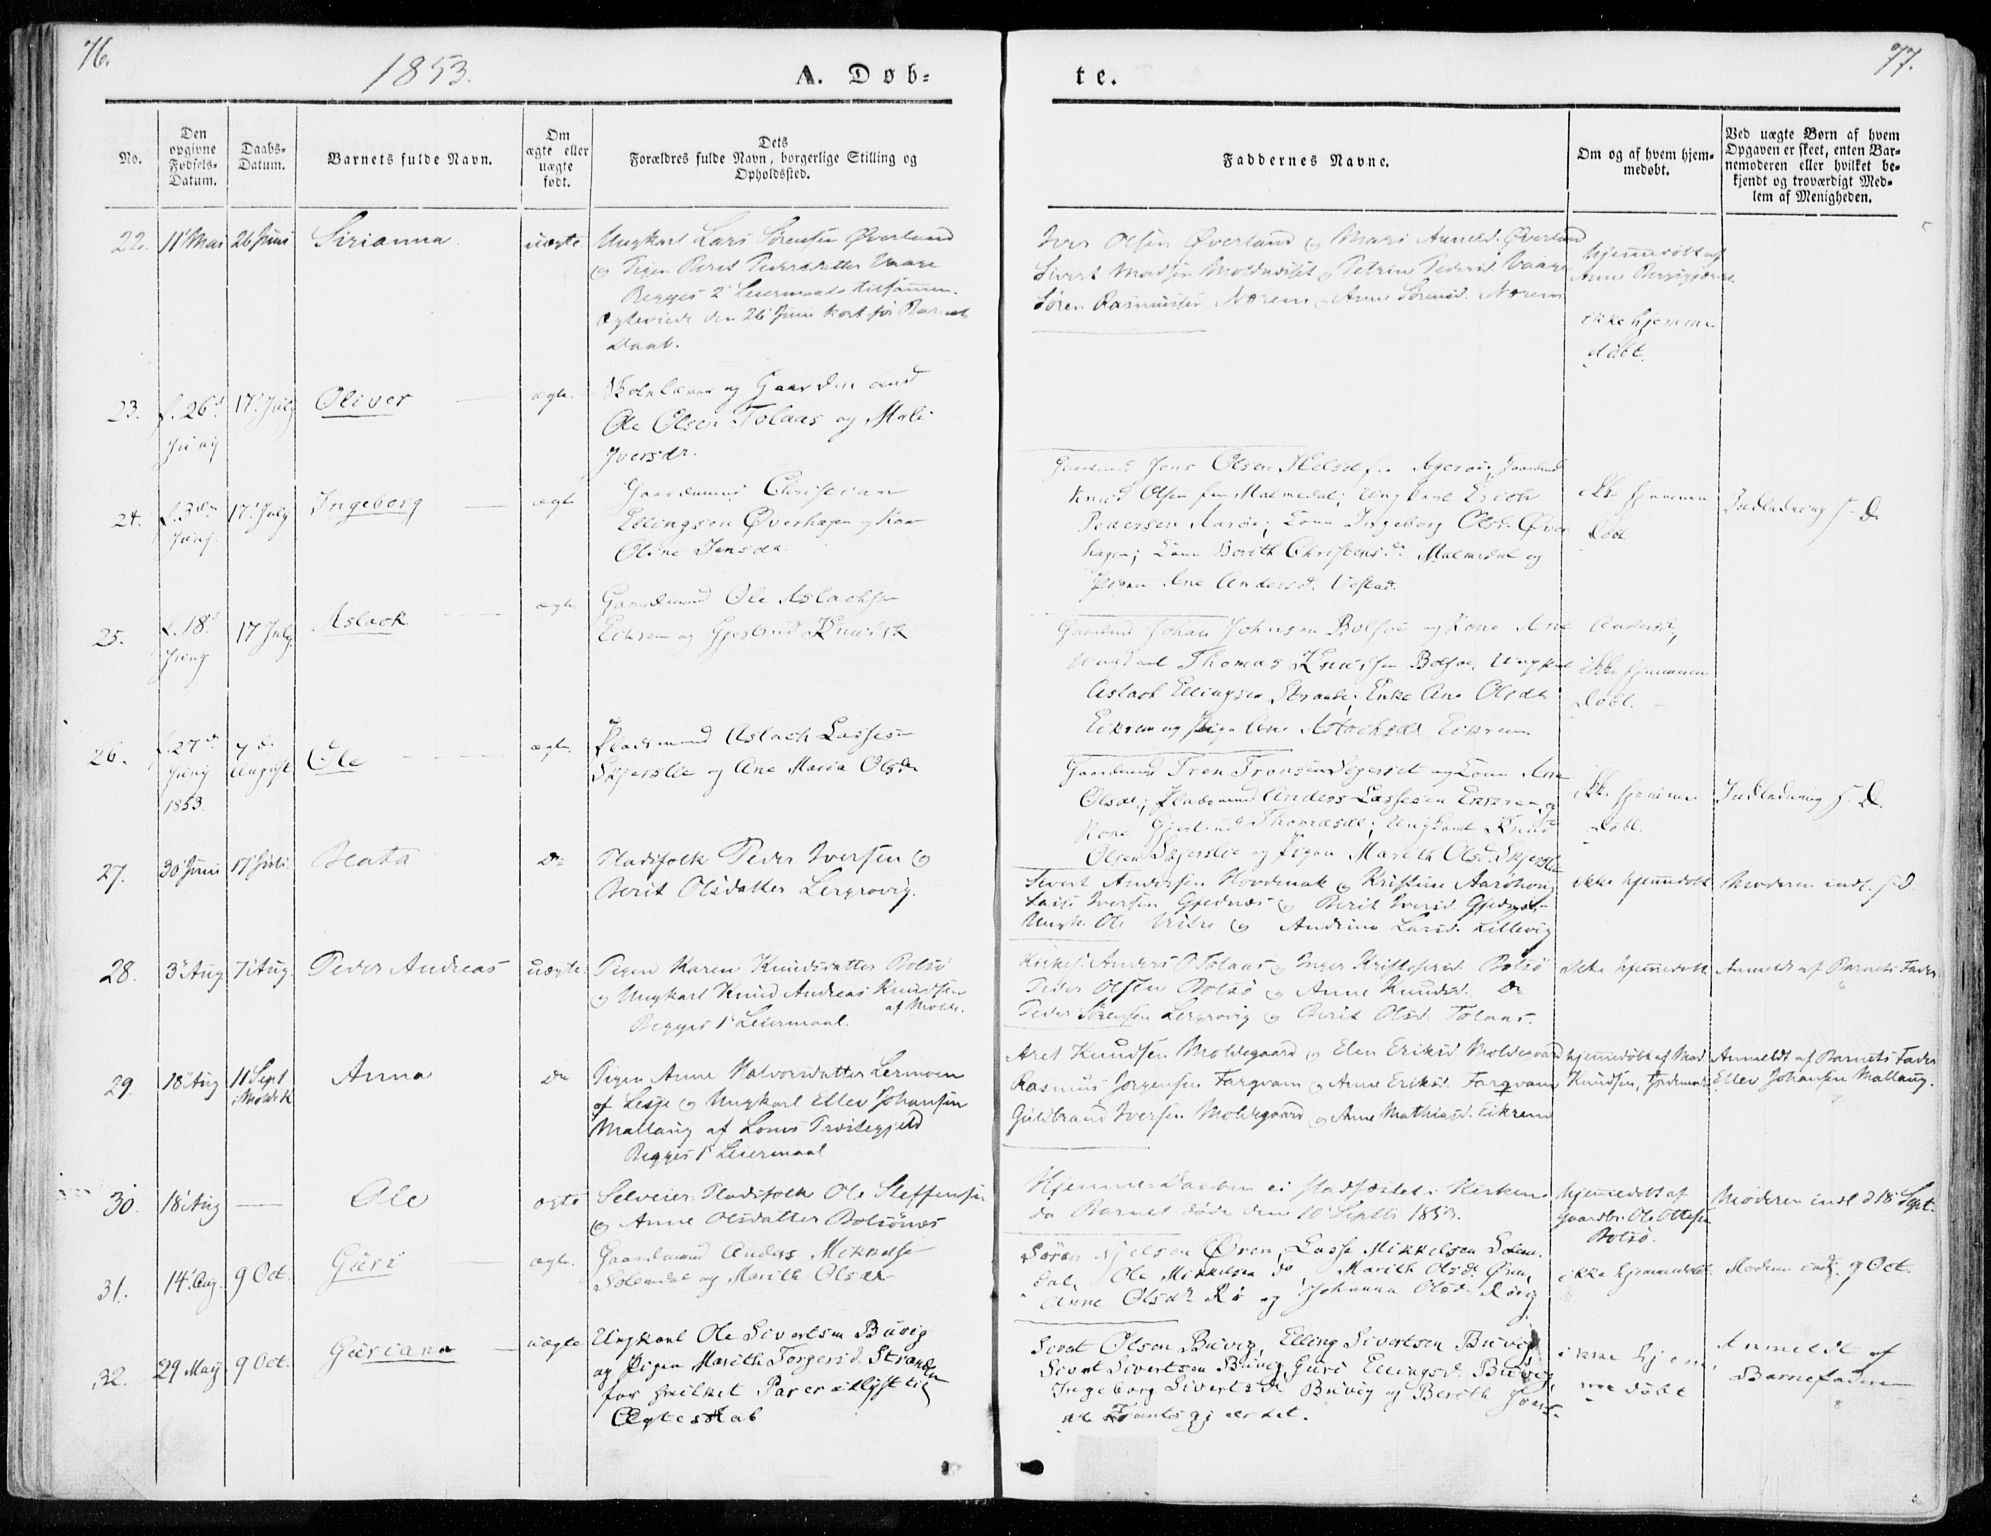 76.
1853.
A. Døb-
te.
77.
No.
Den
opgivne
Fødsels-
Datum.
Daabs-
Datum.
Barnets fulde Navn.
Om
ægte eller
uægte
født.
Dets
Forældres fulde Navn, borgerlige Stilling og
Opholdssted.
Faddernes Navne.
Om og af hvem hjem-
medøbt.
Ved uægte Børn af hvem
Opgaven er skeet, enten Bar-
nemoderen eller hvilket be-
kjendt og troværdigt Med-
lem af Menigheden.
22.
11' Mai
26 Juni
Sirianna
uægte
Ungkarl Lars Sørensen Øverland
og Pigen Berit Pedersdatter Vaage
Begges 2' Leiermaal tilsammen.
Ægteviede den 26' Juni kort før Barnets
Daab.
Iver Olsen Øverland og Mari Arnelsd. Øverland
Sivert Madsen Moldesæter og Petrine Pedersd. Vaage
Søren Rasmussen Nærem og Anne Sørensd. Nærem
hjemmedøbt af
Anne
ikke hjemme
døbt.
23.
f. 26d
Junij
17' July
Oliver
ægte
Skolelærer og Gaardmand
Ole Olsen Tolaas og Mali
Iversdr.
24.
f. 3de
Junij
17' July
Ingeborg
ægte
Gaardmand Christian
Ellingsen Øverhagen og Kone
Oline Jensdr.
Gaardmand Jens Olsen
Knud Olsen fra Malmedal; Ungkarl Erich
Pedersen Aarøe; Kone Ingeborg Olsd. Øver
hagen; Kone Berith Christensd. Malmedal og
Pigen Ane Andersd. Vestad.
ikke hjemme
døbt
Indledning s. D.
25.
f. 18d
Junij
17 July
Aslack
ægte
Gaardmand Ole Aslachsen
Eikrem og Gjertrud Knudsdr
Gaardmand Johan Johnsen Bolsøe og Kone Ane Andersd.
Ungkarl Thomas Knudsen Bolsøe, Ungkarl
Aslach Ellingsen Strande; Enke Ane Olsdr
Eikrem og Pige Ane Aslachsdr Eikrem
ikke hjemme
døbt.
26.
f. 27d
Junij
1853.
7de
August
Ole
ægte
Pladsmand Aslach Lassesen
Skjerslie og Ane Maria Olsdr
Gaardmand Tron Tronsen og Kone Ane
Olsdr; Pladsmand Anders Lassesen Eikrem og
Kone Gjertrud Thomasdr; Ungkarl Knud
Olsen Skjerslie og Pigen Marith Olsd. Skjerslie
ikke hjemme
døbt.
Indledning s. D.
27.
30' Juni
17' Juli
Beata
Do
Pladsfolk Peder Iversen og
Berit Olsdatter Lergrovig.
Sivert Andersen Hovdenak og Kristine Aarøhoug
Lars Iversen Gjednæs og Berit Iversd. Gjednæs
Ungk. Ole og Andrine Larsd. Lillevig
ikke hjemmedøbt
Moderen indl. s. D.
28.
3' Aug
7' Aug.
Peder Andreas
uægte
Pigen Karen Knudsdatter Bolsø
og Ungkarl Knud Andreas Knudsen
af Molde.
Begges 1' Leiermaal.
Kirkes. Anders O Tolaas og Inger Kristophersd. Bolsø
Peder Olsen Bolsø og Anne Knudsd. Do
Peder Sørensen Lergrovig og Berit Olsd. Tolaas.
ikke hjemmedøbt
Anmeldt af Barnets Fader
29.
18' Aug
11' Sept
i Molde K
Anna
Do
Pigen Anne Halvorsdatter Lermoen
af Lesje og Ungkarl Ellev Johansen
Mallaug af Loms Præstegjeld
Begges 1' Leiermaal
Aret Knudsen Moldegaard og Elen Eriksd. Moldegaard
Rasmus Jørgensen Fargvam og Anne Eriksd. Fargvam
Guldbrand Iversen Moldegaard og Anne Mathiasd. Eikrem
hjemmedøbt af Mad.
Knudsen,
Anmeldt af Barnets Fader
Ellev Johansen Mallaug.
30.
18' Aug
Ole
ægte
Selveier Pladsfolk Ole Steffensen
og Anne Olsdatter Bolsønæs
Hjemme-Daaben ei stadfæstet i Kirken
da Barnet døde den 10' Septbr 1853.
hjemmedøbt af
Gaardbr. Ole Ottesen
Bolsø.
Moderen indl. d 18' Sept.
31.
14' Aug.
9 Oct.
Guri
ægte
Gaardmand Anders Mikkelse
Solemdal og Marith Olsdr
Søren Øren, Lasse Mikkelsen Solem
dal, Ole Mikkelsen do Marith Olsd. Øren,
Anne Olsdr Rø og Johanna Olsd. Røvig
ikke hjemmedøbt
Moderen indl. 9 Oct.
32.
29 Maij
9 Oct.
Guriana
uægte
Ungkarl Ole Sivertsen Buvig
og Pigen Marith Torgersd. Strande
for hvilket Par er udlyst til
Ægteskab
Sivert Olsen Buvig, Elling Sivertsen Buvig
Sivert Sivertsen Buvig, Guri Ellingsd. Buvig,
Ingeborg Sivertsdr Buvig og Berith
ikke hjem
medøbt
Anmeldt af
Barnefaderen